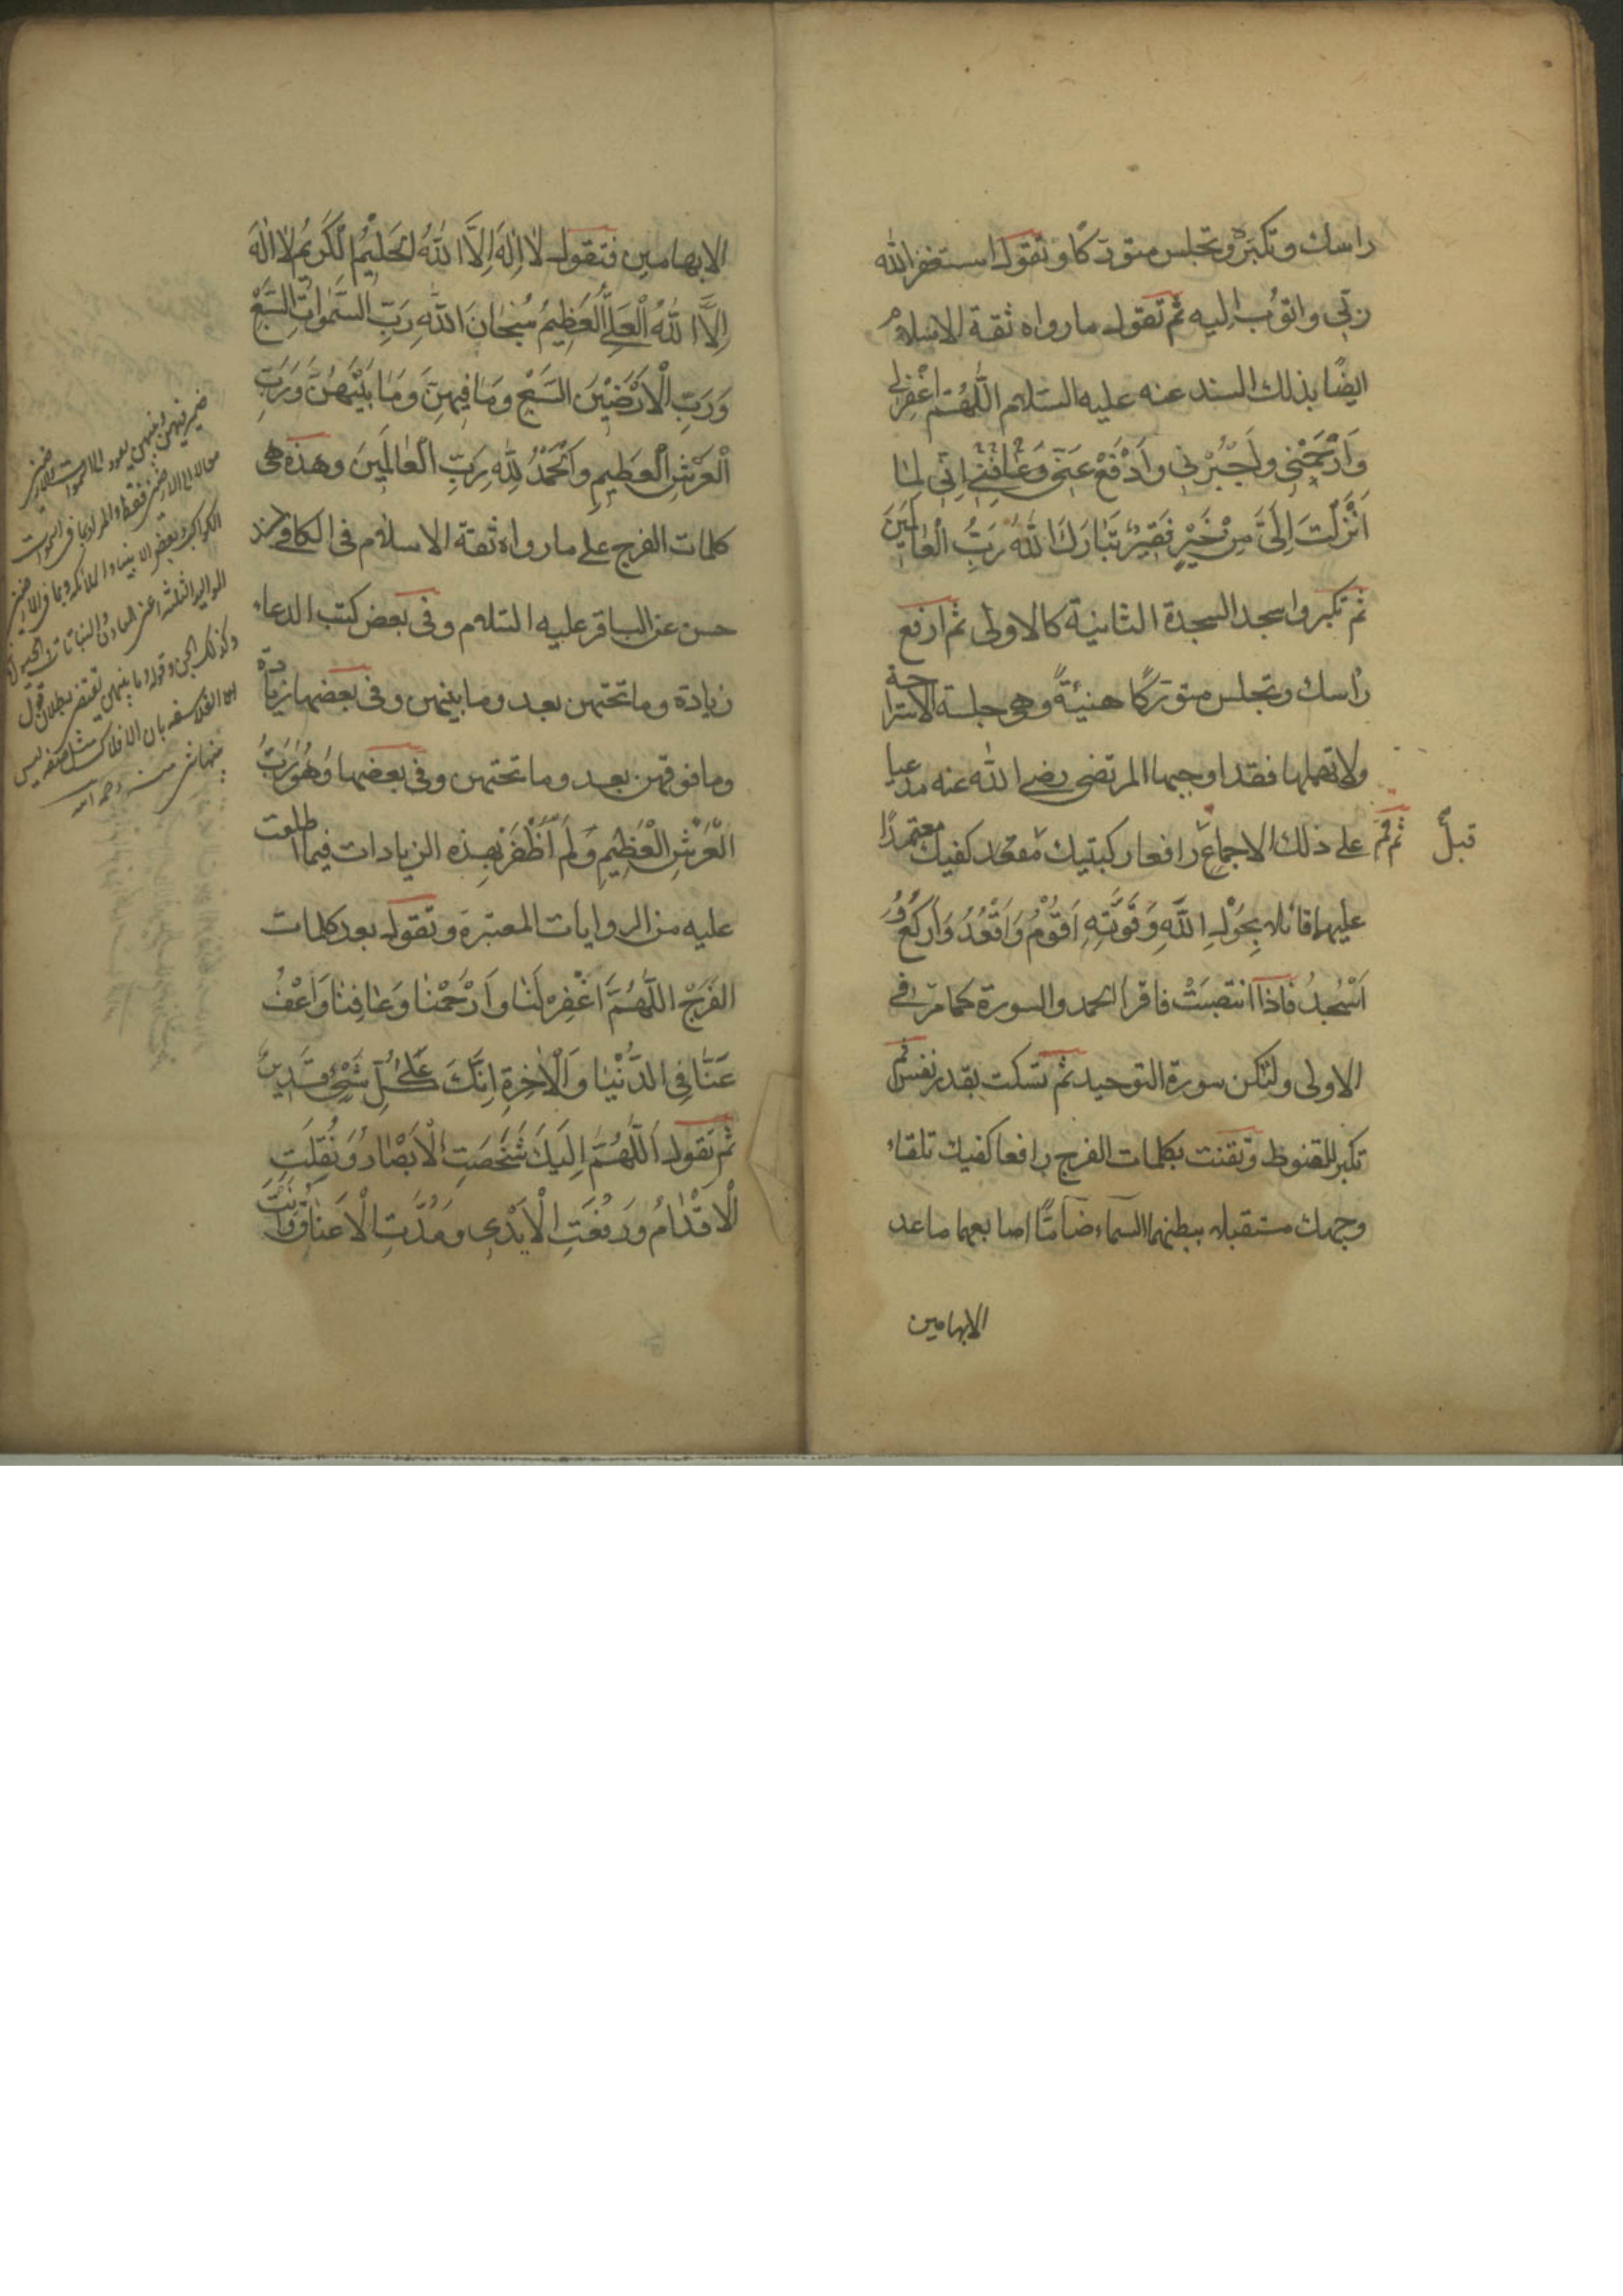 راسك وتكبر وتجلس متوركا وتقول استغفر الله
ربي واتوب اليه ثم تقول ما رواه ثقة الاسلام
ايضًا بذلك السند عنه عليه السلام اللّٰهُمَّ اغْفِرْ لي
وَارْحَمْنِي وَاجْبُرْنِي وَادْفَعْ عَنِّي وَعَافِنِي اِنِّي لِمَا
اَنْزَلْتَ اِلَيَّ مِنْ خَيْرٍ فَقِيرٌ تَبَارَكَ اللهُ رَبُّ الْعَالَمِينَ
ثم تكبر واسجد السجدة الثانية كالاولى ثم ارفع
راسك وتجلس متوركًا هنيئةً وهي جلسة الاستراحة
ولا تهملها فقد اوجبها المرتضى رضي الله عنه مدعيا
على ذلك الاجماع ثم قم رافعا ركبتيك قبل كفيك معتمدًا
عليهما قائلا بِحَوْلِ اللّٰهِ وَقُوَّتِهِ اَقُوْمُ وَاَقْعُدُ وَاَرْكَعُ وَ
اَسْجُدُ فاذا انتصبَتْ فاقرا الحمد والسورة كما مرّ في
الاولى ولتكن سورة التوحيد ثم تسكت بقدر نفس ثم
تكبر للقنوط وتقنت بكلمات الفرج رافعا كفيك تلقاء
وجهك مستقبلا ببطنهما السماء ضامًّا اصابعهما ماعد
الابهامين
الابهامين فتقول لا اِلٰهَ اِلَّا اللهُ الْحَلِيْمُ الْكَرِيمُ لا الٰهَ
اِلَّا اللهُ الْعَلِيُّ الْعَظِيمُ سُبْحَانَ اللهِ رَبِّ السَّمٰوَاتِ السَّبْعِ
وَرَبِّ الْاَرَضِيْنَ السَّبْعِ وَمَا فِيهِنَّ وَمَا بَيْنَهُنَّ وَرَبِّ
الْعَرْشِ الْعَظِيمِ وَالْحَمْدُ لِلّٰهِ رَبِّ الْعَالَمِينَ وهذه هي
كلمات الفرج على ما رواه ثقة الاسلام في الكافي بسند
حسن عن الباقر عليه السلام وفي بعض كتب الدعاء
زيادة وما تحتهن بعد وما بينهن وفي بعضها زيادة
وما فوقهن بعد وما تحتهن وفي بعضها وَهُوَ رَبُّ
الْعَرْشِ الْعَظِيْمِ وَلَمْ اَظْفَرْ بهذه الزيادات فيما اطلعت
عليه من الروايات المعتبرة وتقول بعد كلمات
الفَرَجْ اللّٰهُمَّ اغْفِرْ لَنَا وَارْحَمْنَا وَعَافِنَا وَاعْفُ
عَنَّا فِي الدُّنْيَا وَالْاٰخِرَةِ اِنَّكَ عَلىٰ كُلِّ شَيْءٍ قَدِيرٌ
ثم تقول اَللّٰهُمَّ اِلَيْكَ شَخَصَتِ الْاَبْصَارُ وَنُقِلَتِ
الْاَقْدَامُ وَرُفِعَتِ الْاَيْدِي وَمُدَّتِ الْاَعْنَاقُ وَاَنْتَ
ضمير فيهن وبينهن يعود الى السموات والارضين
لا الى الارضين فقط والمراد بما في السموات
الكواكب وبعض الانبياء والملائكة وبما في الارضين
المواليد الثلثة اعني المعادن والنباتات والحيوان
وكذلك الجن وقوله وما بينهن يقتضي بطلان قول
الفلاسفة بان الافلاك متصلة ليس
بينها شيء منه رحمه الله